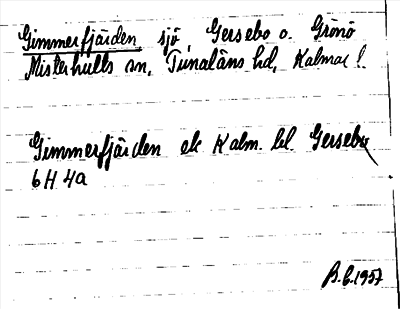 Gimmerfjärden sjö, Gersebo o. Grönö
Misterhults sn, Tunaläns hd, Kalmar l.
Gimmerfjärden ek Kalm. bl. Gersebo
6H 4a
B.G. 1957